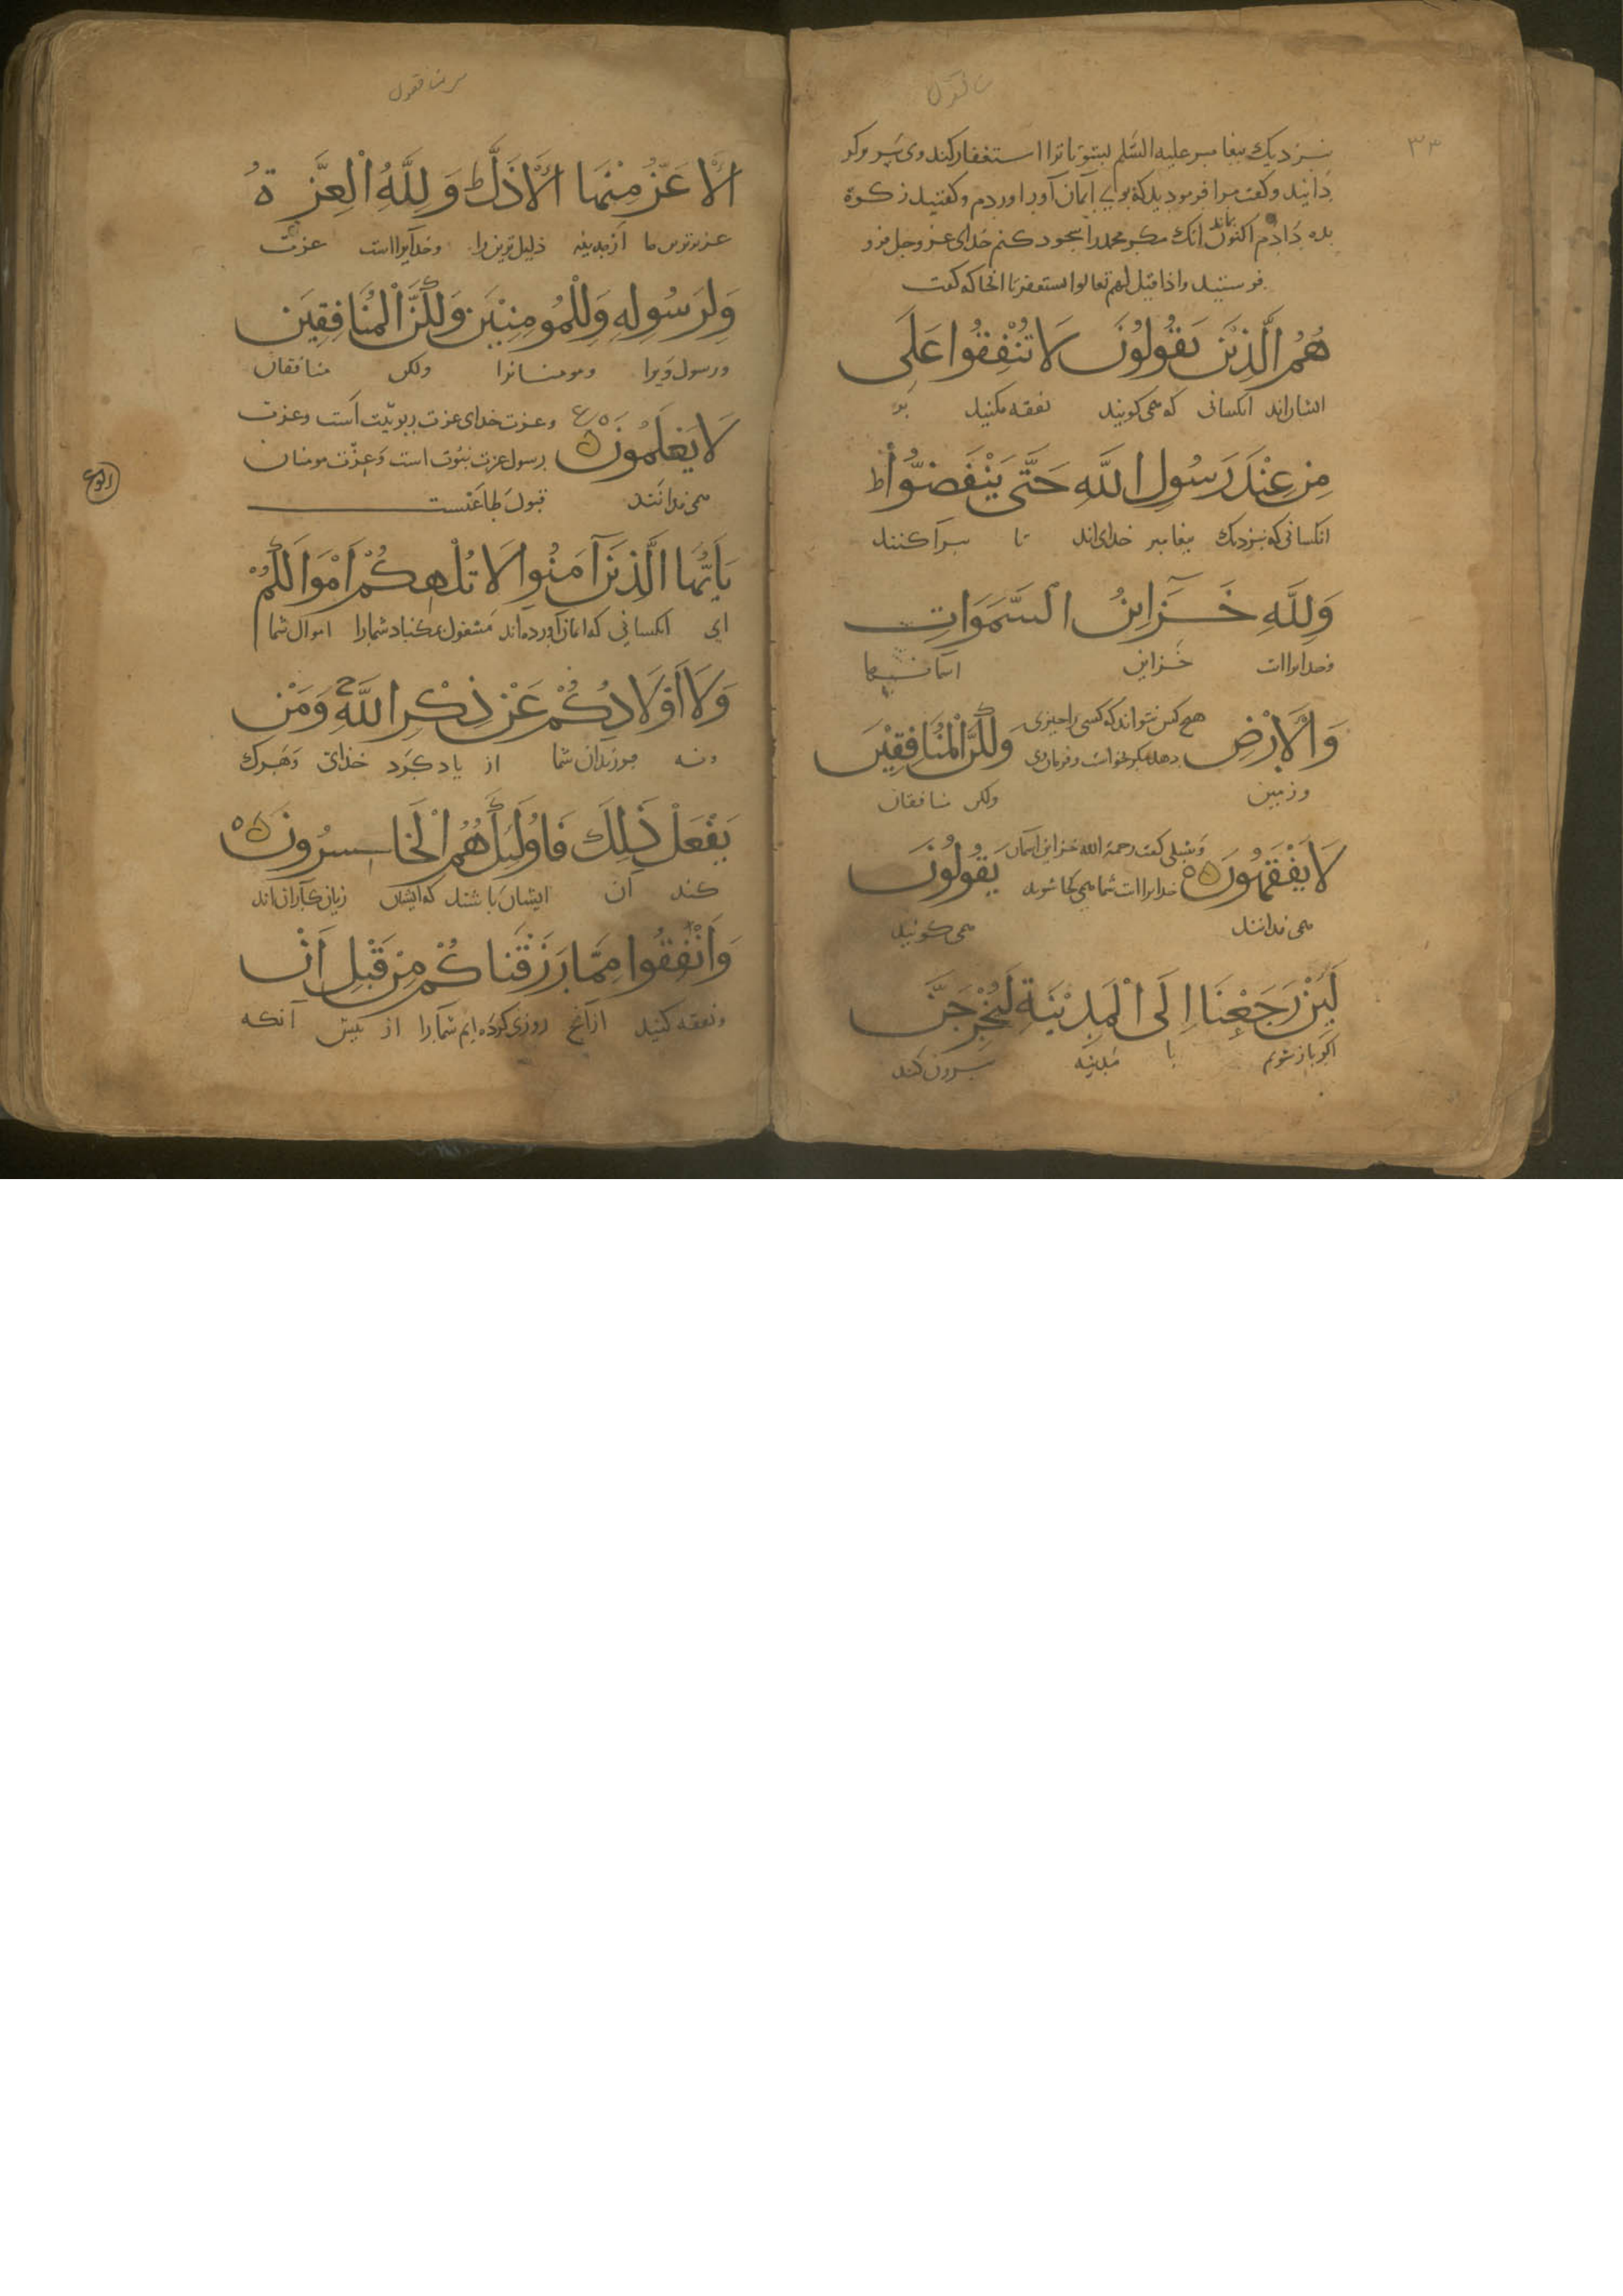 ۳۳
نزدیک پیغامبر علیه السّلم بشو تا ترا استغفار کند وی سر وکر
دانید وگفت مرا فرمودید که بوی ایمان آور اوردم وگفتید زکوة
بده دادم اکنون نماند انک مکر محمد را سجود کنم خدای عز وجل فرو
فرستید واذا قیل لهم تعالوا یستغفر تا انجا که گفت
هُمُ الَّذِيْنَ يَقُولُونَ لَا تُنْفِقُوا عَلَى
ایشان‌اند انکسانی که می کویند نفقه مکنید بر
مِنْ عِنْدَ رَسُولِ اللَّهِ حَتَّى يَنْفَضُّوْا ط
انکسانی که نزدیک پیغامبر خدای‌اند تا پراکنند
وَلِلَّهِ خَزَايِنُ السَّمَوَاتِ
وخدایراات خزاین اسمانیها
وَالْاَرْضِ هیچ کس نتواند که کسی را چیزی
دهد مکر بخواست وفرمان وی وَلَكِنَّ الْمُنَافِقِيْنَ
وزمین ولکن منافقان
لَا يَفْقَهُونَ ه وشبلی گفت رحمة الله خزاین اسمان
خدایراات شما می کجا شوید يَقُولُونَ
می ندانند می کویند
لَئِنْ رَجَعْنَا اِلَى الْمَدِيْنَةِ لَيُخْرِجَنَّ
اکر باز شویم با مدینه بیرون کند
الْاَعَزُّ مِنْهَا الْاَذَلَّ ط وَلِلَّهِ الْعِزَّةُ
عزیزترین ما از مدینه ذلیل‌ترین را وخدایرا است عزت
وَلِرَسُولِهِ وَلِلْمُومِنِيْنَ وَلَكِنَّ الْمُنَافِقِيْنَ
ورسول ویرا ومومنانرا ولکن منافقان
لَا يَعْلَمُونَ ه ع وعزت خدای عزت ربوبیّت است وعزت
رسول عزت نبوّت است وعزّت مومنان
می ندانند قبول طاعتست
يَاَيُّهَا الَّذِيْنَ آمَنُوا لَا تُلْهِكُمْ اَمْوَالُكُمْ
ای انکسانی که ایمان آورده‌اند مشغول مکناد شما را اموال شما
وَلَا اَوْلَادُكُمْ عَنْ ذِكْرِ اللَّهِ وَمَنْ
ونه فرزندان شما از یاد کرد خدای وهرک
يَفْعَلْ ذَلِكَ فَاُولَئِكَ هُمُ الْخَاسِرُونَ ه
کند ان ایشان باشند که ایشان زیان‌کاران‌اند
وَاَنْفِقُوا مِمَّا رَزَقْنَاكُمْ مِنْ قَبْلِ اَنْ
ونفقه کنید ازانچ روزی کرده‌ایم شما را از پیش آنکه